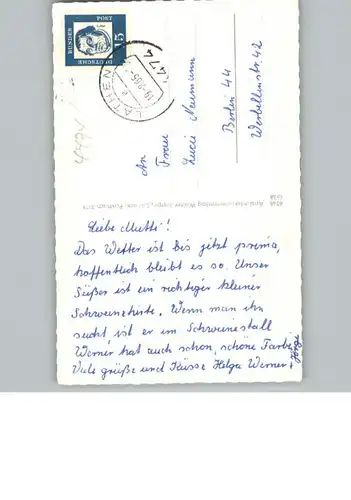 DEUTSCHE
BUNDESPOST
15
LATHEN
4474
An
Frau
Lucie Neumann
Berlin 44
Werbellinstr. 42
Liebe Mutti!
Das Wetter ist bis jetzt prima,
hoffentlich bleibt es so. Unser
Süßer ist ein richtiger kleiner
Schweinehirte. Wenn man ihn
sucht ist er im Schweinestall
Werner hat auch schon schöne Farbe.
Viele grüße und Küsse Helga Werner